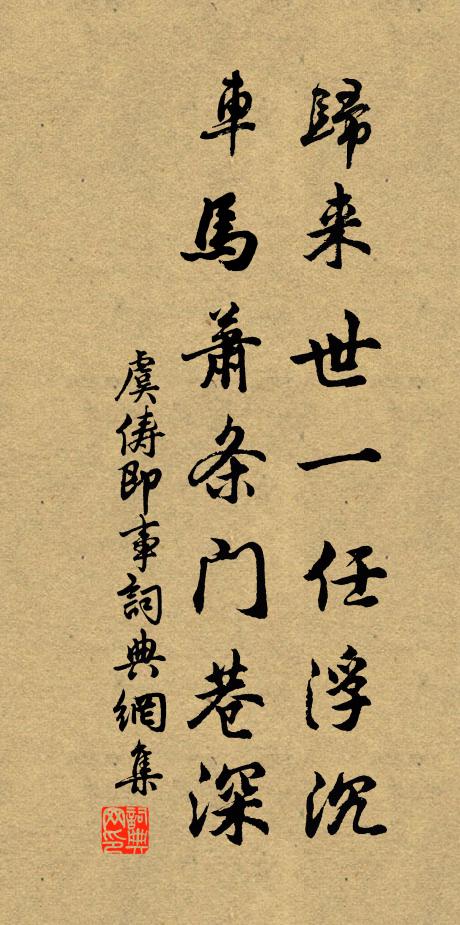 歸来世一任浮沉
車馬蕭条門巷深
虞儔即事詞典網集
詞典网印